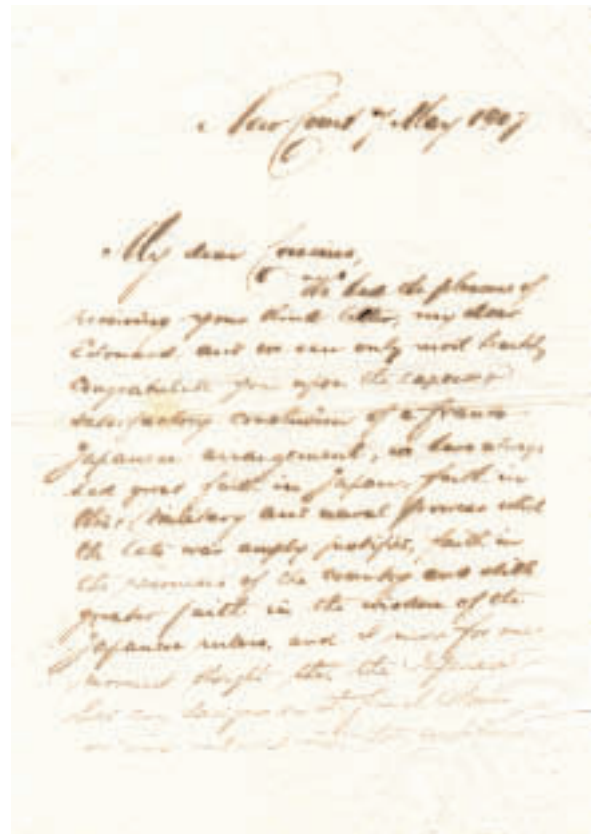 New Court 7 May 1907
My dear Cousins,
We had the pleasure of
receiving your kind letter, my dear
Edouard, and we can only most heartily
congratulate you upon the
satisfactory conclusion of a Franco
Japanese arrangement, we have always
had great faith in Japan, faith in
their military and naval prowess which
the late war amply justified, faith in
the resources of the country and still
greater faith in the wisdom of the
Japanese rulers, and I never for one
moment thought that the Japanese
had any designs on